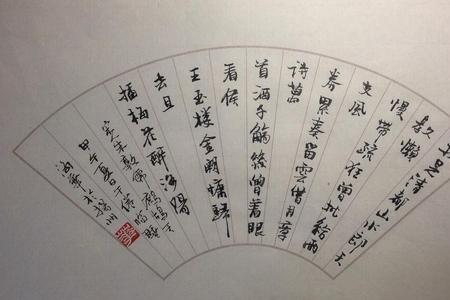 是清都山水郎天
教懶
慢带疏狂曾批给雨
支风
券累奏留雲借月章
诗萬
首酒千觞幾曾着眼
看侯
王玉楼金闕慵歸
去且
插梅花醉洛陽
宋朱敦儒鹧鸪天
甲午夏日于
於揚州